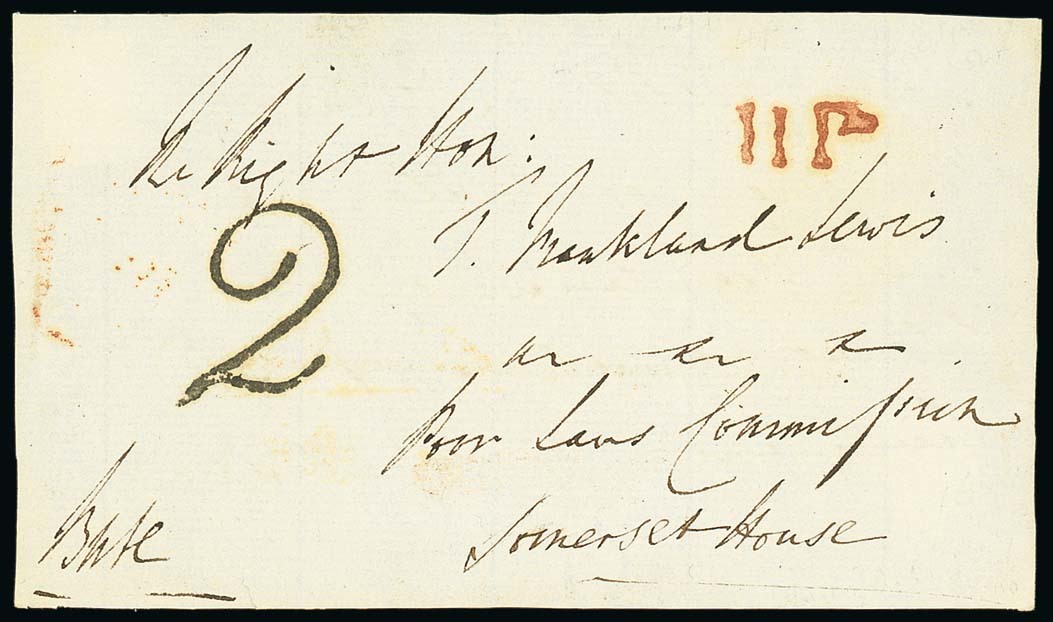 The Right Hon:
IIP
T. Frankland Lewis
2
&c &c &c
Poor Laws Commission
Somerset House